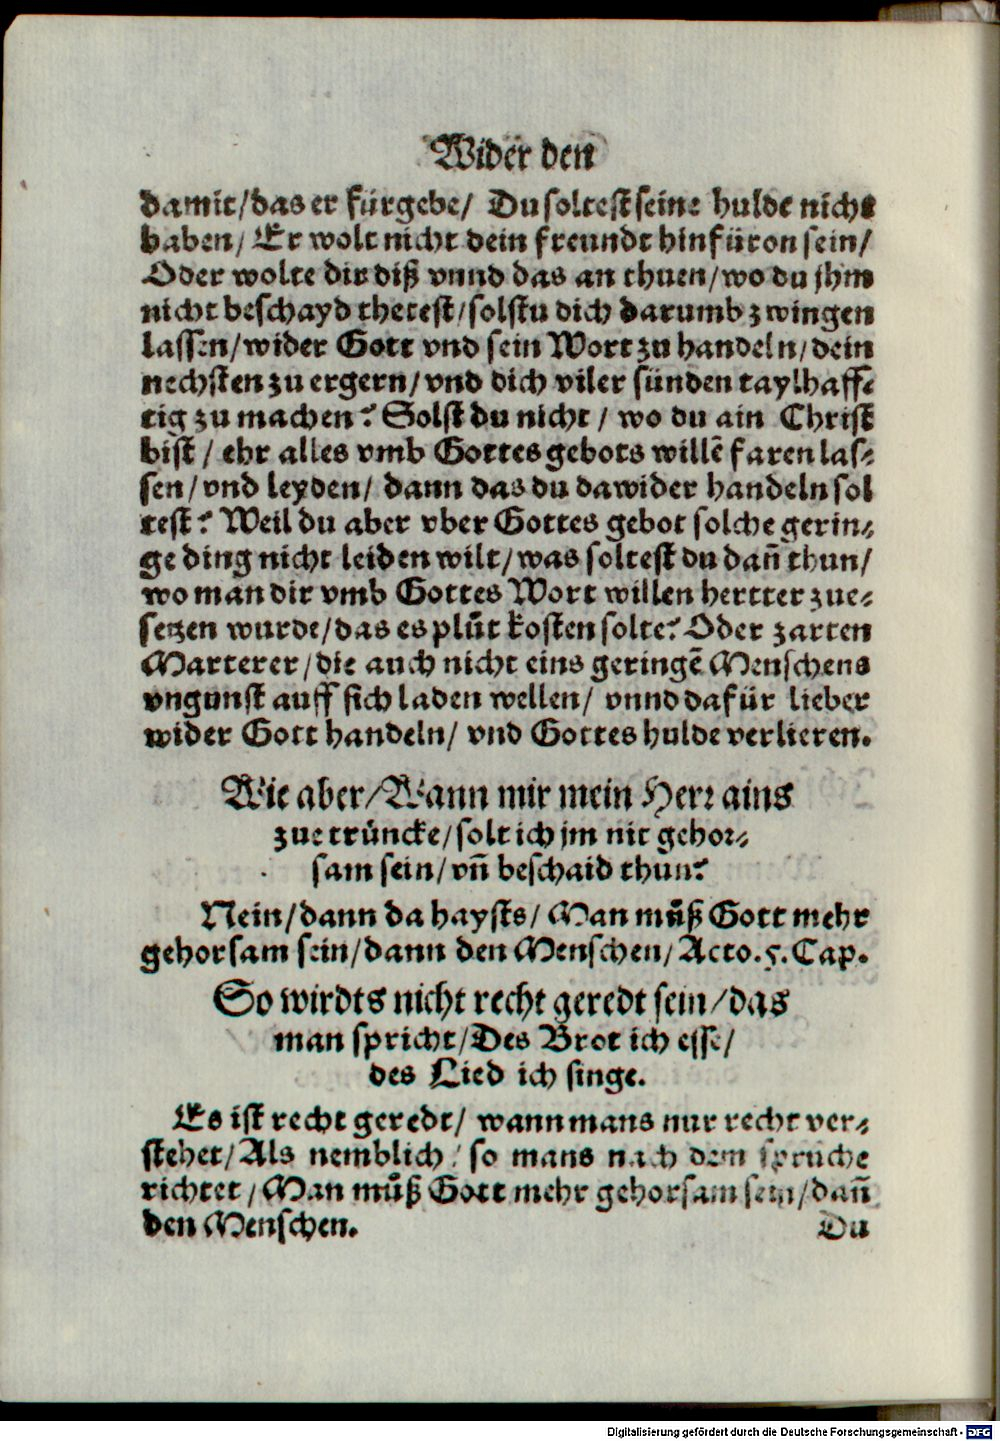 Wider den
damit/das er fürgebe/ Du soltest seine hulde nicht
haben/ Er wolt nicht dein freundt hinfüron sein/
Oder wolte dir diß vnnd das an thuen/wo du jhm
nicht beschayd thetest/solstu dich darumb zwingen
lassen/wider Gott vnd sein Wort zu handeln/dein
nechsten zu ergern/vnd dich viler sünden taylhaff⸗
tig zu machen? Solst du nicht/ wo du ain Christ
bist/ ehr alles vmb Gottes gebots willē faren las⸗
sen/vnd leyden/ dann das du dawider handeln sol
test? Weil du aber vber Gottes gebot solche gerin⸗
ge ding nicht leiden wilt/was soltest du dañ thun/
wo man dir vmb Gottes Wort willen hertter zue⸗
setzen wurde/das es plůt kosten solte? Oder zarten
Marterer/die auch nicht eins geringē Menschens
vngunst auff sich laden wellen/ vnnd dafür lieber
wider Gott handeln/ vnd Gottes hulde verlieren.
Wie aber/Wann mir mein Herr ains
zue trüncke/solt ich jm nit gehor⸗
sam sein/vñ beschaid thun?
Nein/dann da haysts/ Man můß Gott mehr
gehorsam sein/dann den Menschen/Acto.5.Cap.
So wirdts nicht recht geredt sein/das
man spricht/Des Brot ich esse/
des Lied ich singe.
Es ist recht geredt/ wann mans nur recht ver⸗
stehet/Als nemblich/ so mans nach dem spruche
richtet/Man můß Gott mehr gehorsam sein/dañ
den Menschen.
Du
Digitalisierung gefördert durch die Deutsche Forschungsgemeinschaft - DFG